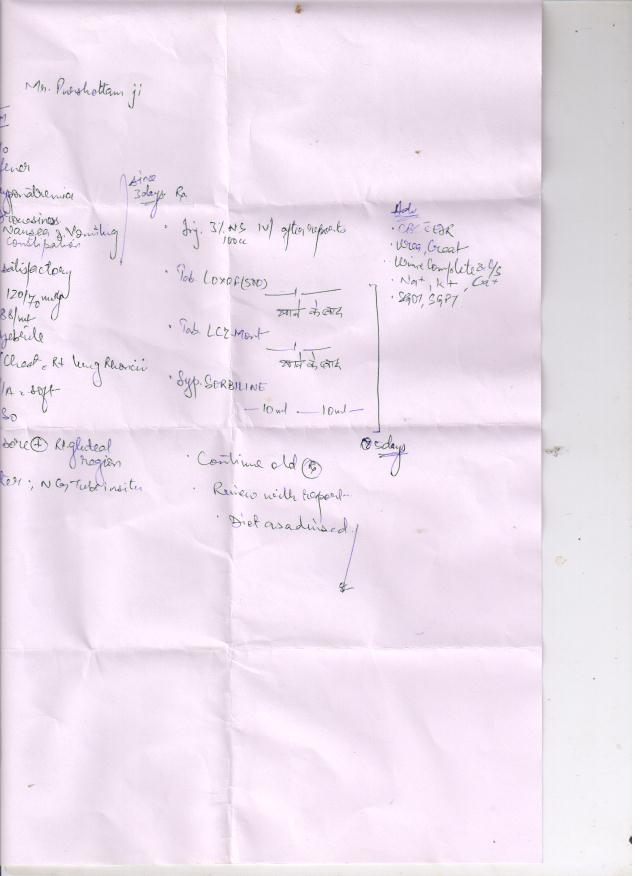 Mr. Purshottam ji
since
3days
Nausea & Vomiting
Constipation
satisfactory
120/70 mmHg
88/mt
febrile
Chest - Rt lung Rhonchi
P/A - soft
sore (+) Rt gluteal
region
NG, Tube insitu
Rx
· Inj. 3% NS IV after reports
100cc
· Tab. LOXOF(500)
खाने के बाद
· Tab LCZ-Mont
खाने के बाद
· Syp. SERBILINE
— 10ml — 10ml —
5days
· Continue old (Rx)
· Review with report
· Diet as advised
Adv
· CBC ESR
· Urea, Creat
· Urine Complete & C/S
· Na+, K+, Ca+
· SGOT, SGPT